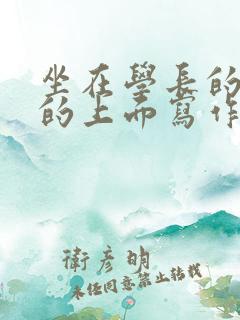 坐在學長的
的上面寫作
衛彥明
未经同意禁止转载